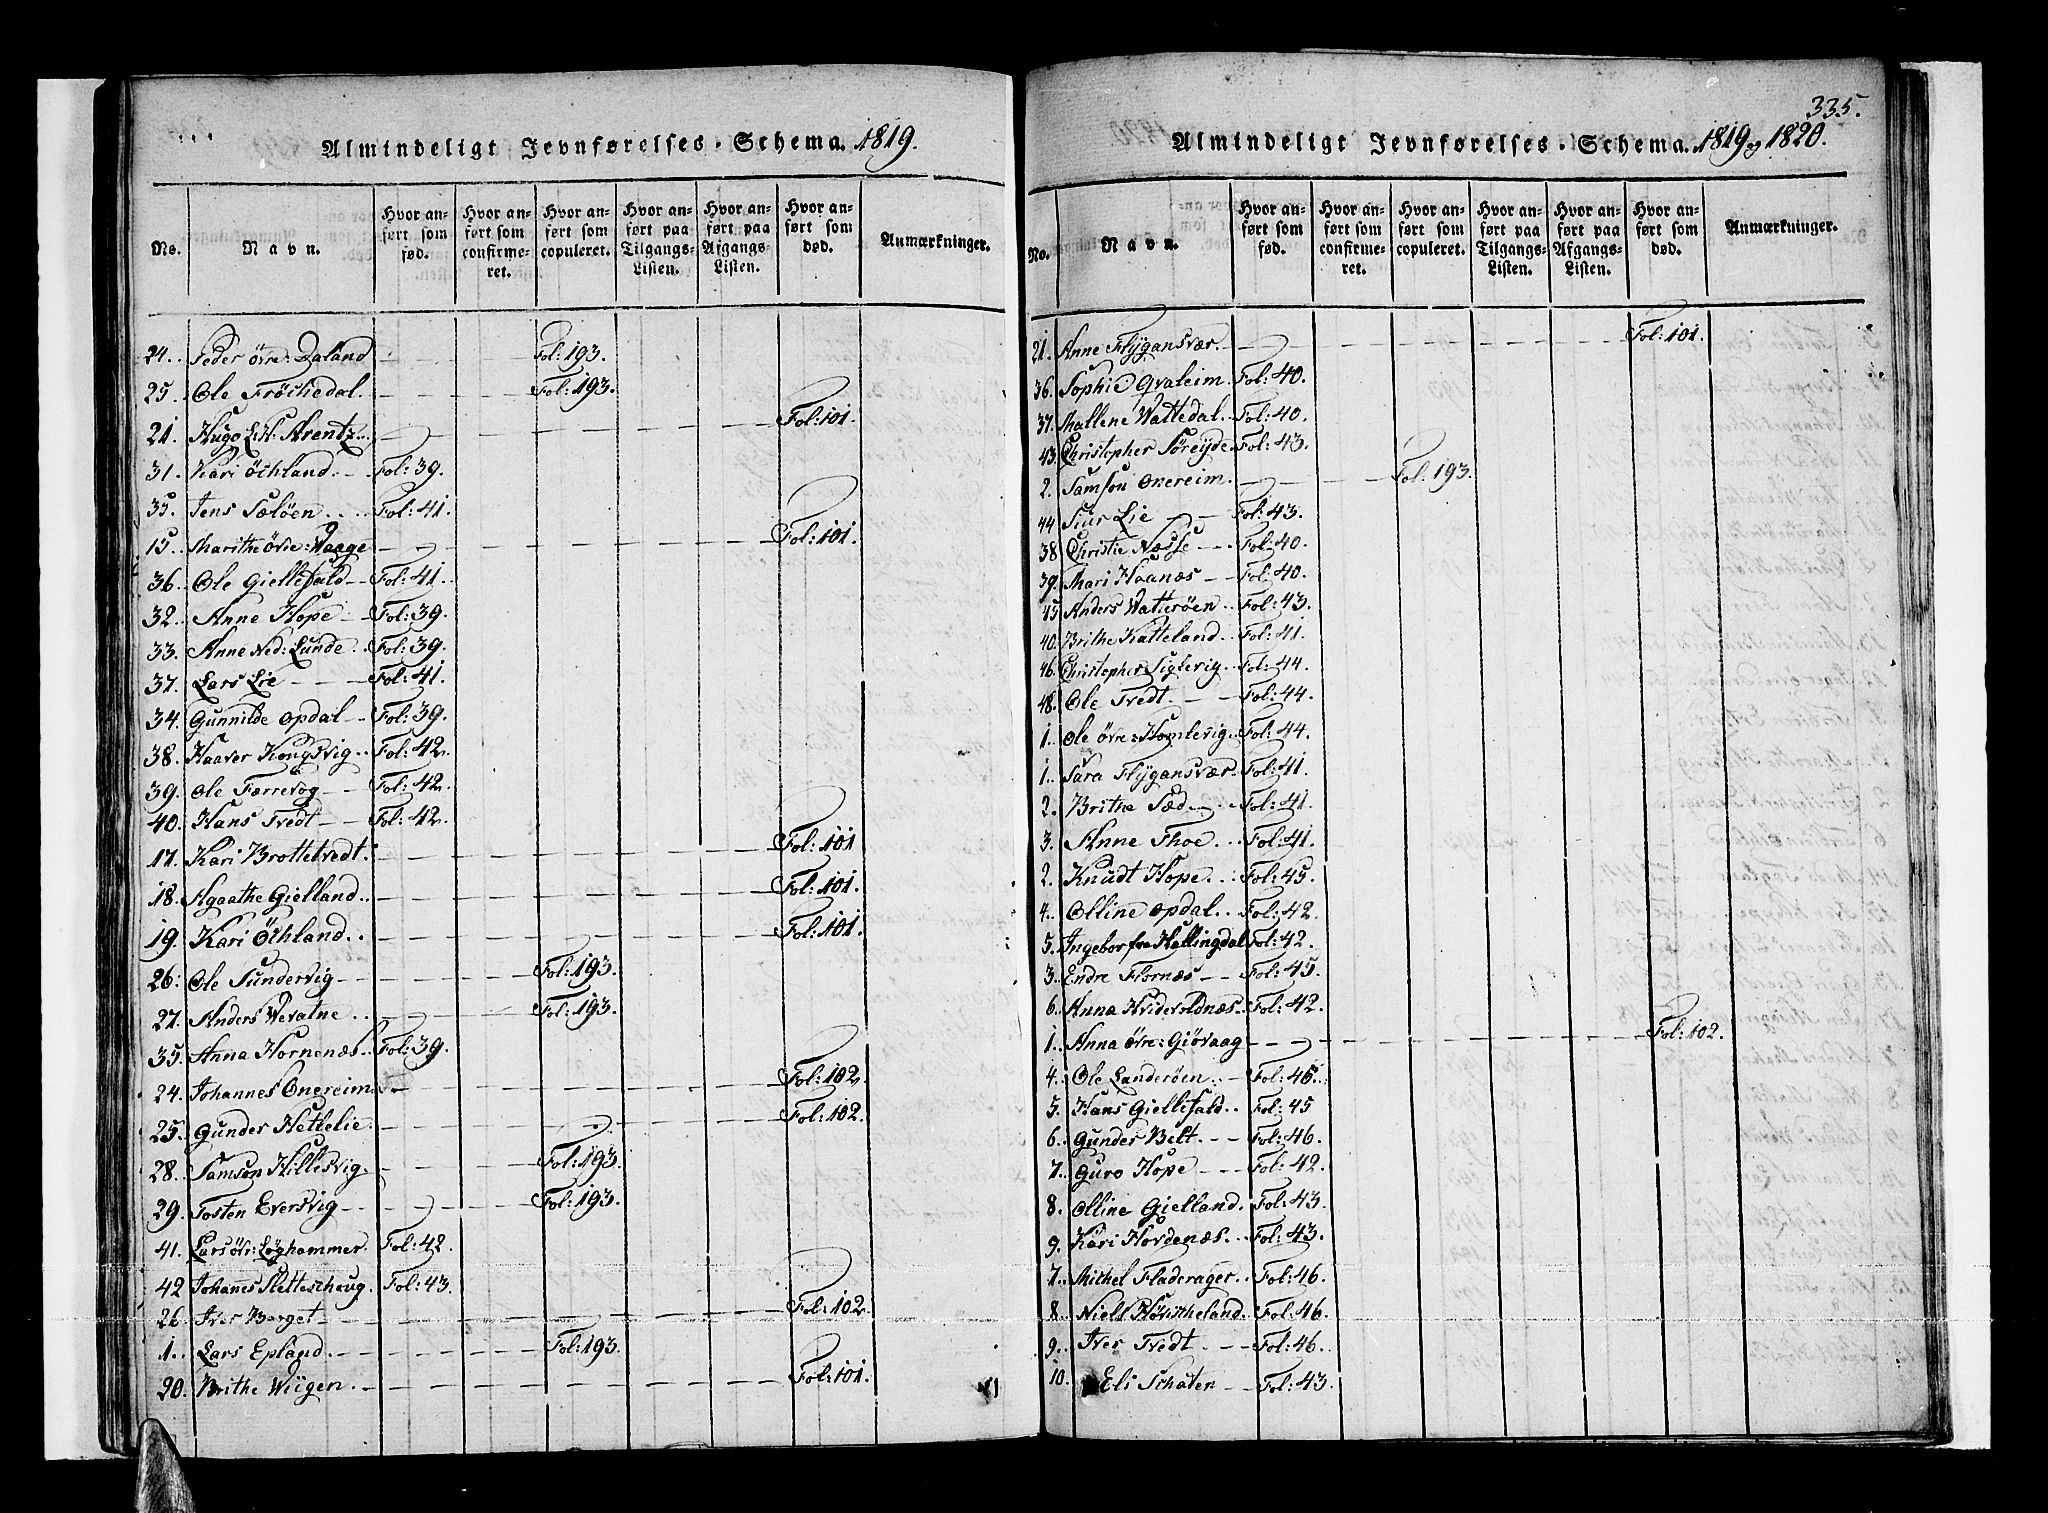 Almindeligt Jevnførelses-Schema. 1819.
No. Navn. Hvor anført som fød. Hvor anført som confirmeret. Hvor anført som copuleret. Hvor anført paa Tilgangs-Listen. Hvor anført paa Afgangs-Listen. Hvor anført som død. Anmærkninger.
24. Peder Øvre: Daland Fol: 193.
25. Ole Fröchedal. Fol: 193.
21. Hugo Arentz Fol: 101.
31. Kari Öchland Fol: 39.
35. Jens Sæløen Fol: 41.
15. Marithe Øvre: Waage Fol: 101.
36. Ole Giellefald Fol: 41.
32. Anne Hope Fol: 39.
33. Anne Ned: Lunde Fol: 39.
37. Lars Lie Fol: 41.
34. Gunnilde Opdal Fol: 39.
38. Haaver Kongsvig Fol: 42.
39. Ole Færrevog Fol: 42.
40. Hans Tvedt Fol: 42.
17. Kari Brottetvedt Fol: 101
18. Agaathe Gielland Fol: 101.
19. Kari Öchland Fol: 101.
26. Ole Sundervig Fol: 193.
27. Anders Weratne Fol: 193.
35. Anna Hornenæs Fol: 39.
24. Johannes Onereim Fol: 102.
25. Gunder Hettelie Fol: 102.
28. Samson Hillesvig Fol: 193.
29. Tosten Eversvig Fol: 193.
41. Lars Øvr: Løghammer Fol: 42.
42 Johannes Sletteschoug. Fol: 43.
26. Iver Berget Fol: 102.
1. Lars Epland Fol: 193.
20. Brithe Wiigen Fol: 101.
335.
Almindeligt Jevnførelses-Schema. 1819 og 1820.
No. Navn. Hvor anført som fød. Hvor anført som confirmeret. Hvor anført som copuleret. Hvor anført paa Tilgangs-Listen. Hvor anført paa Afgangs-Listen. Hvor anført som død. Anmærkninger.
21. Anne Flÿgansvær Fol: 101.
36. Sophie Qvaleim Fol: 40.
37. Mallene Wattedal Fol: 40.
43. Christopher Søreyde Fol: 43.
2. Samson Onereim Fol: 193.
44 Siur Lie Fol: 43.
38 Christie Næsse Fol: 40.
39. Mari Haanæs Fol: 40.
45 Anders Watterøen Fol: 43.
40. Brithe Katteland Fol: 41.
46. Christopher Siglevig Fol: 44.
48. Ole Tvedt Fol: 44.
1. Ole Øvre: Homlevig Fol: 44.
1. Sara Flÿgansvær Fol: 41.
2. Brithe Sæd Fol: 41.
3. Anne Thoe Fol: 41.
2. Knudt Hope Fol: 45.
4. Olline Opdal Fol: 42.
5. Ingebor fra Hallingdal Fol: 42.
3. Endre Flornæs Fol: 45.
6. Anna Hvidevoldnæs Fol: 42.
1. Anna Øvre: Giøvaag Fol: 102.
4. Ole Landerøen Fol: 45.
5. Hans Giellefald Fol: 45
6. Gunder Belt Fol: 46.
7. Guro Hope Fol: 42.
8. Olline Gielland Fol: 43.
9. Kari Hovdenæs Fol: 43.
7. Michel Fladerager Fol: 46.
8. Niels Fol: 46.
9. Iver Tvedt Fol: 46.
10. Eli Schaten Fol: 43.